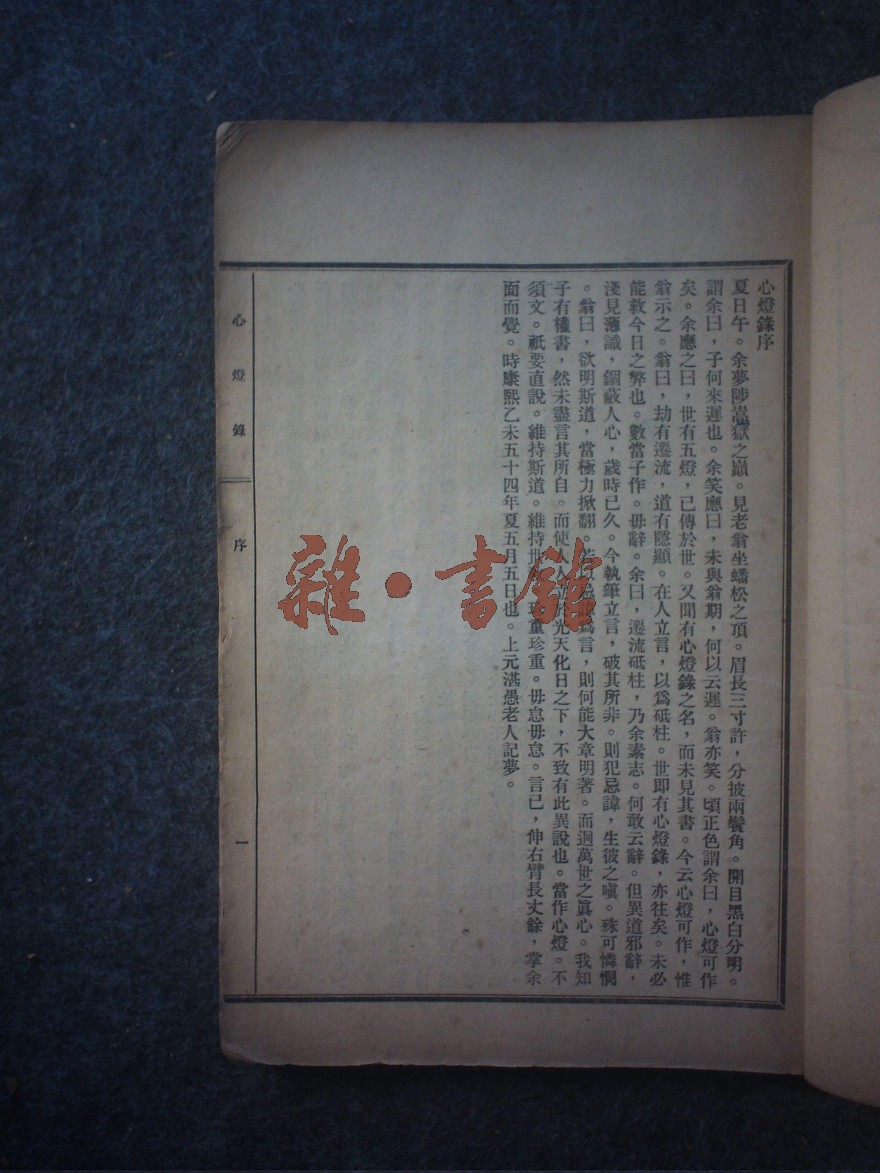 心燈錄序
夏日午。余夢陟嵩嶽之巔。見老翁坐蟠松之頂。眉長三寸許，分披兩鬢角。開目黑白分明。
謂余曰，子何來遲也。余笑應曰，未與翁期，何以云遲。翁亦笑。頃正色謂余曰，心燈可作
矣。余應之曰，世有五燈，已傳於世。又聞有心燈錄之名，而未見其書。今云心燈可作，惟
翁示之。翁曰，劫有遷流，道有隱顯。在人立言，以爲砥柱。世即有心燈錄，亦往矣。未必
能救今日之弊也。數當子作。毋辭。余曰，遷流砥柱，乃余素志。何敢云辭。但異道邪辭，
淺見薄識，錮蔽人心，歲時已久。今執筆立言，破其所非。則犯忌諱，生彼之嗔。殊可憐憫
。翁曰，欲明斯道，當極力掀翻。爲言，則何能大章明著。而迥萬世之眞心。我知
子有權書，然未盡言其所自。而使人人光天化日之下，不致有此異說也。當作心燈。不
須文。祇要直說。維持斯道。維持世重珍重。毋怠毋怠。言已，伸右臂長丈餘，掌余
面而覺。時康熙乙未五十四年夏五月五日也。上元湛愚老人記夢。
心燈錄
序
一
雜·書館